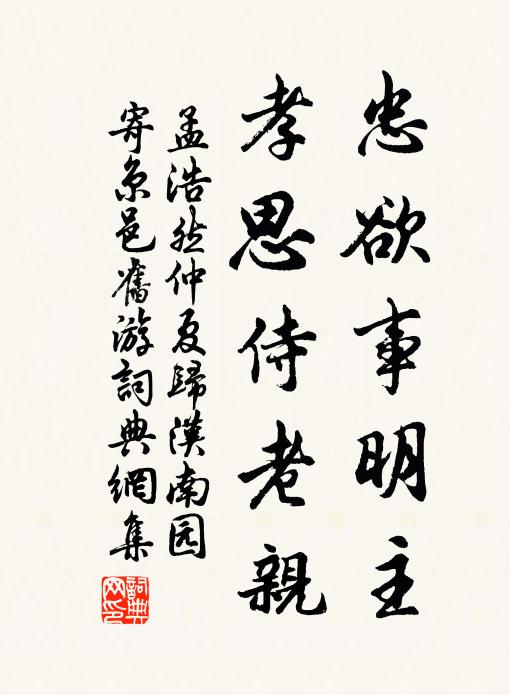 忠欲事明主
孝思侍老親
孟浩然仲夏歸漢南园
寄京邑舊游詞典網集
詞典
网印